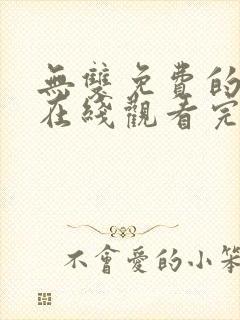 無雙免費的
在綫觀看完
不會愛的小笨